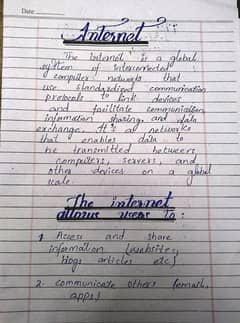 Date
Internet
The Internet is a global
system of Interconnected
computer networks that
use standardized communication
protocols to link devices
and facilitate communication
information sharing, and data
exchange. It's a networks
that enables data to
be transmitted between
computers, servers, and
other devices on a global
scale.
The internet
allows users to :
1. Access and share
information (website,
blogs articles etc)
2. communicate others (email,
apps)